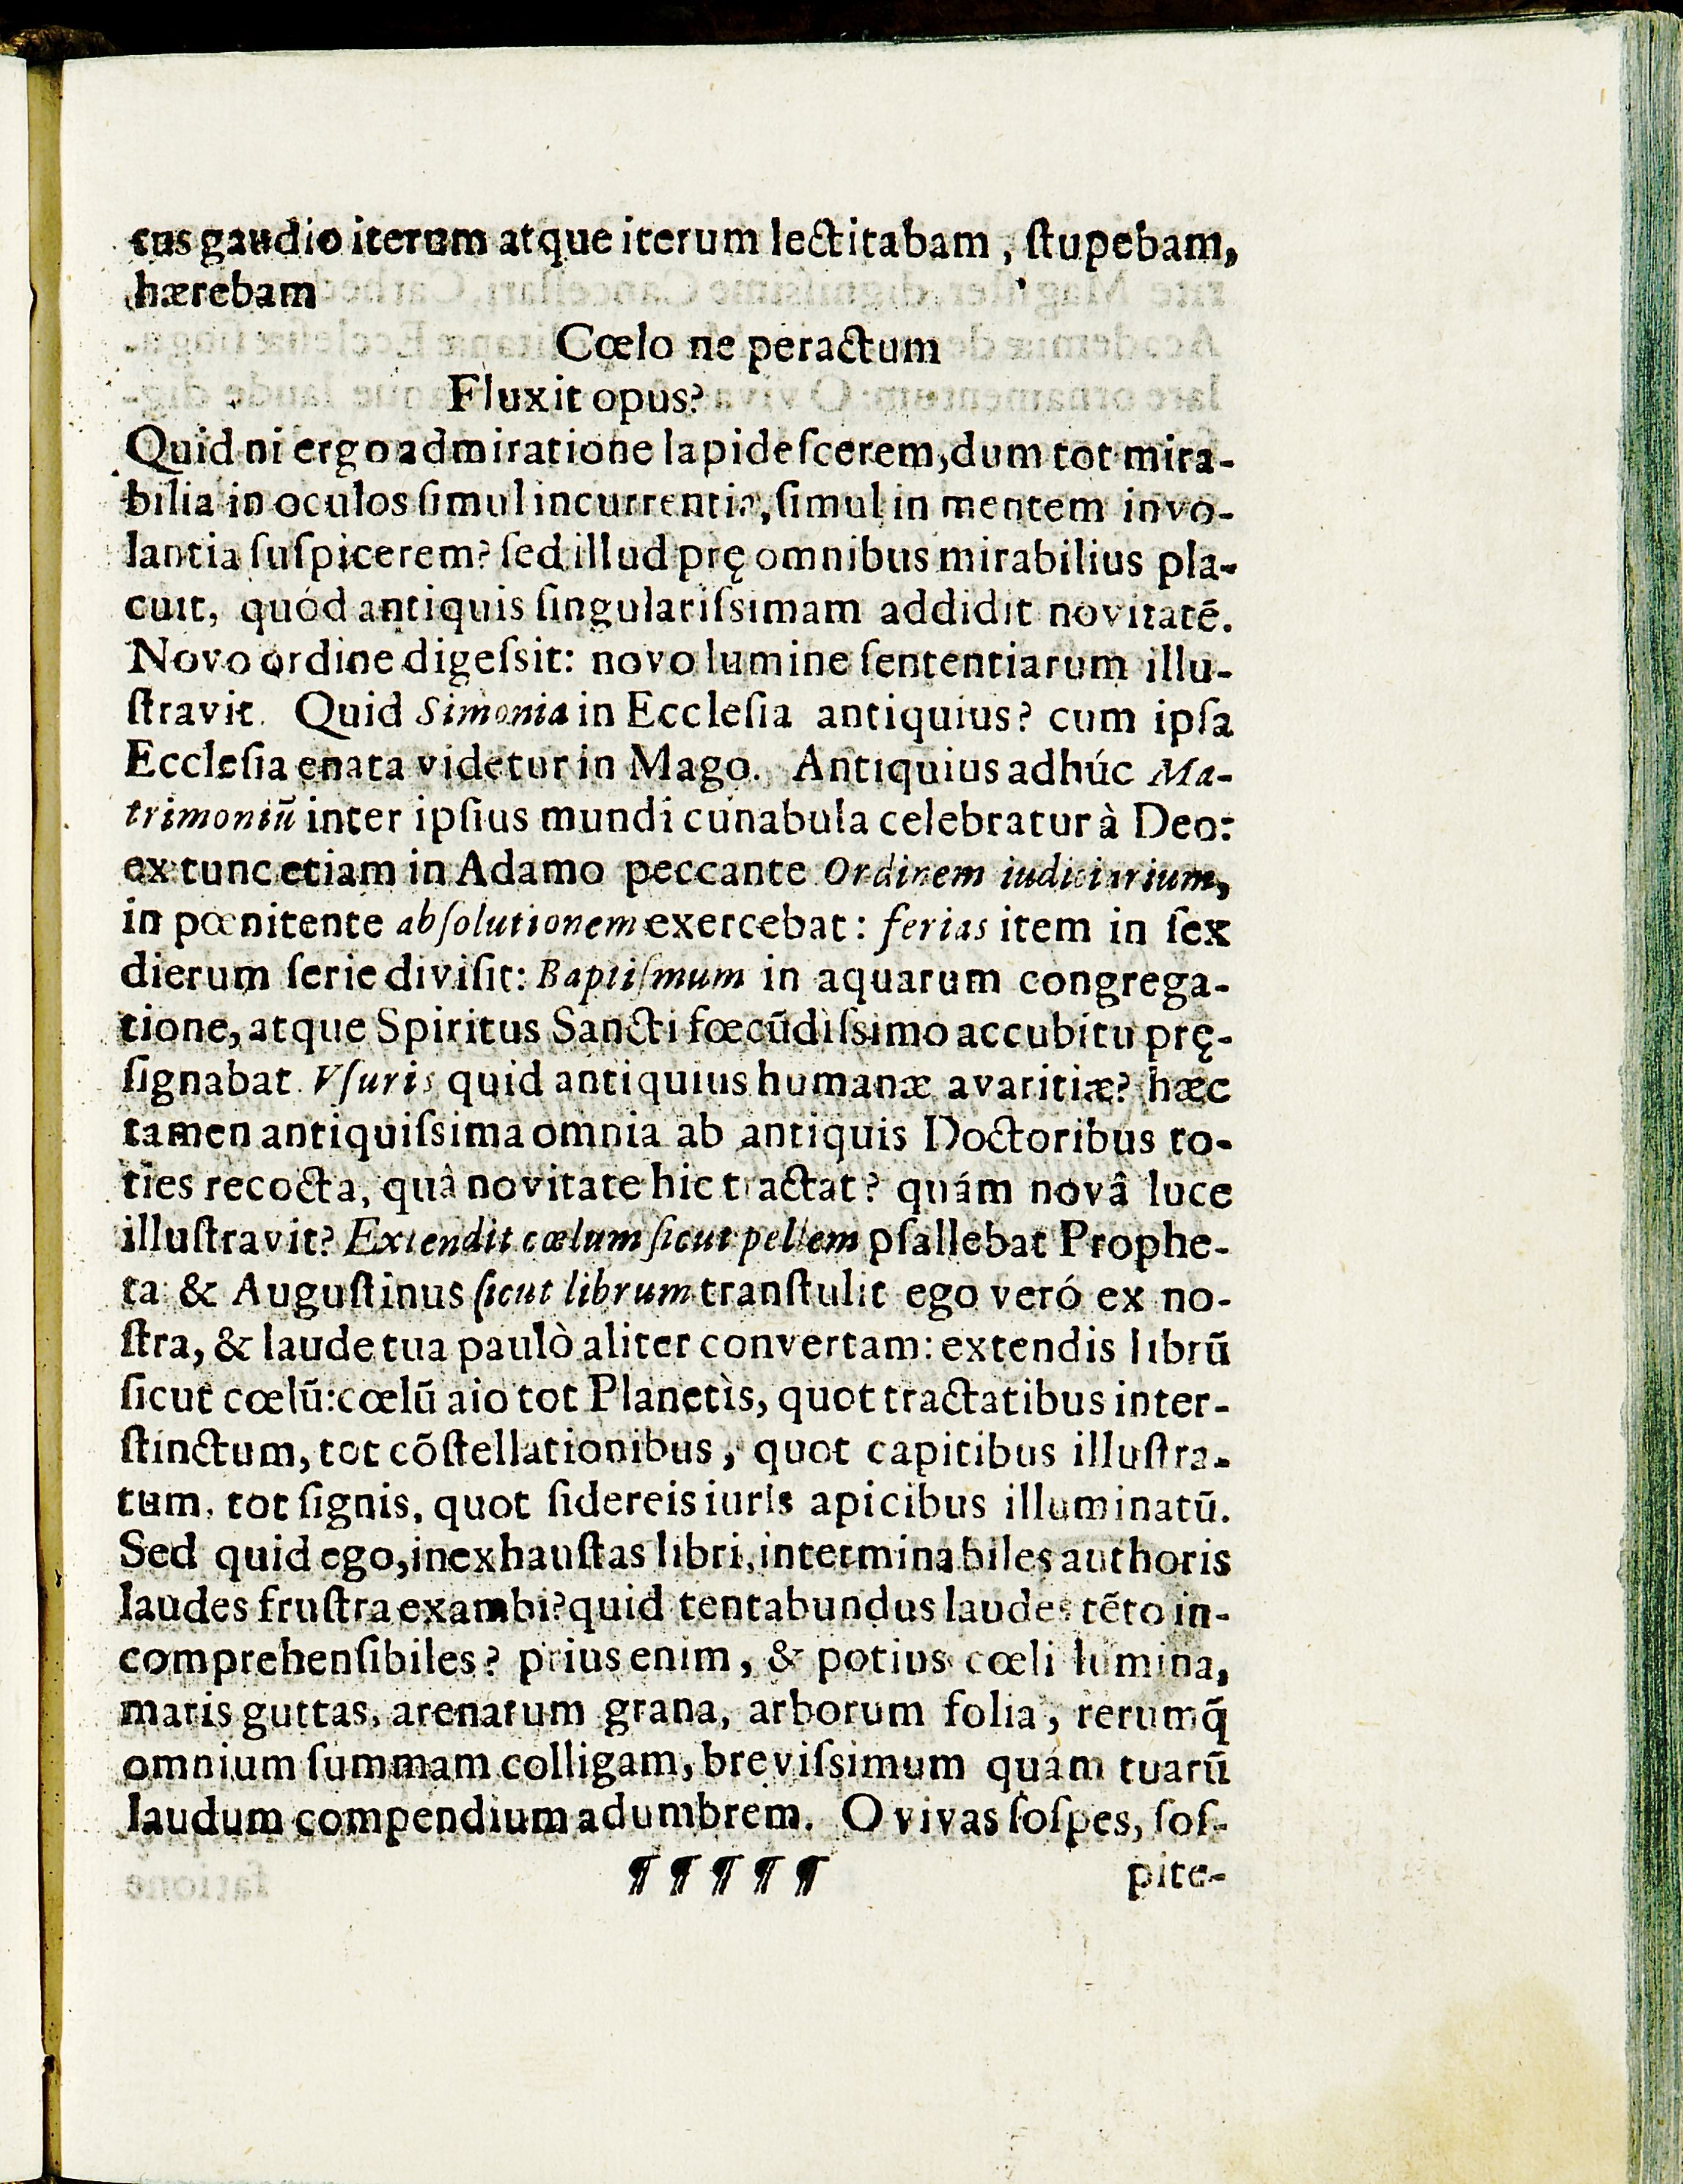 tus gaudio iterum atque iterum lectitabam, ſtupebam,
hærebam
Cœlo ne peractum
Fluxit opus?
Quid ni ergo admiratione lapideſcerem, dum tot mira-
bilia in oculos ſimul incurrentia, ſimul in mentem invo-
lantia ſuſpicerem? ſed illud prę omnibus mirabilius pla-
cuit, quód antiquis ſingulariſsimam addidit novitatẽ.
Novo ordine digeſsit: novo lumine ſententiarum illu-
ſtravit. Quid Simonia in Eccleſia antiquius? cum ipſa
Eccleſia enata videtur in Mago. Antiquius adhúc Ma-
trimoniũ inter ipſius mundi cunabula celebratur à Deo:
ex tunc etiam in Adamo peccante Ordinem iudiciarium,
in pœnitente abſolutionem exercebat: ferias item in ſex
dierum ſerie diviſit: Baptiſmum in aquarum congrega-
tione, atque Spiritus Sancti fœcũdiſsimo accubitu prę-
ſignabat. Vſuris quid antiquius humanæ avaritiæ? hæc
tamen antiquiſsima omnia ab antiquis Doctoribus to-
ties recocta, quâ novitate hic tractat? quám novâ luce
illuſtravit? Extendit cœlum ſicut pellem pſallebat Prophe-
ta & Auguſtinus ſicut librum tranſtulit ego veró ex no-
ſtra, & laude tua paulò aliter convertam: extendis librũ
ſicut cœlũ: cœlũ aio tot Planetìs, quot tractatibus inter-
ſtinctum, tot cõſtellationibus, quot capitibus illuſtra-
tum, tot ſignis, quot ſidereis iuris apicibus illuminatũ.
Sed quid ego, inexhauſtas libri, interminabiles authoris
laudes fruſtra exambi? quid tentabundus laudes tẽto in-
comprehenſibiles? prius enim, & potius cœli lumina,
maris guttas, arenarum grana, arborum folia, rerumq̃
omnium ſummam colligam, breviſsimum quám tuarũ
laudum compendium adumbrem. O vivas ſoſpes, ſoſ-
¶ ¶ ¶ ¶ ¶ pite-